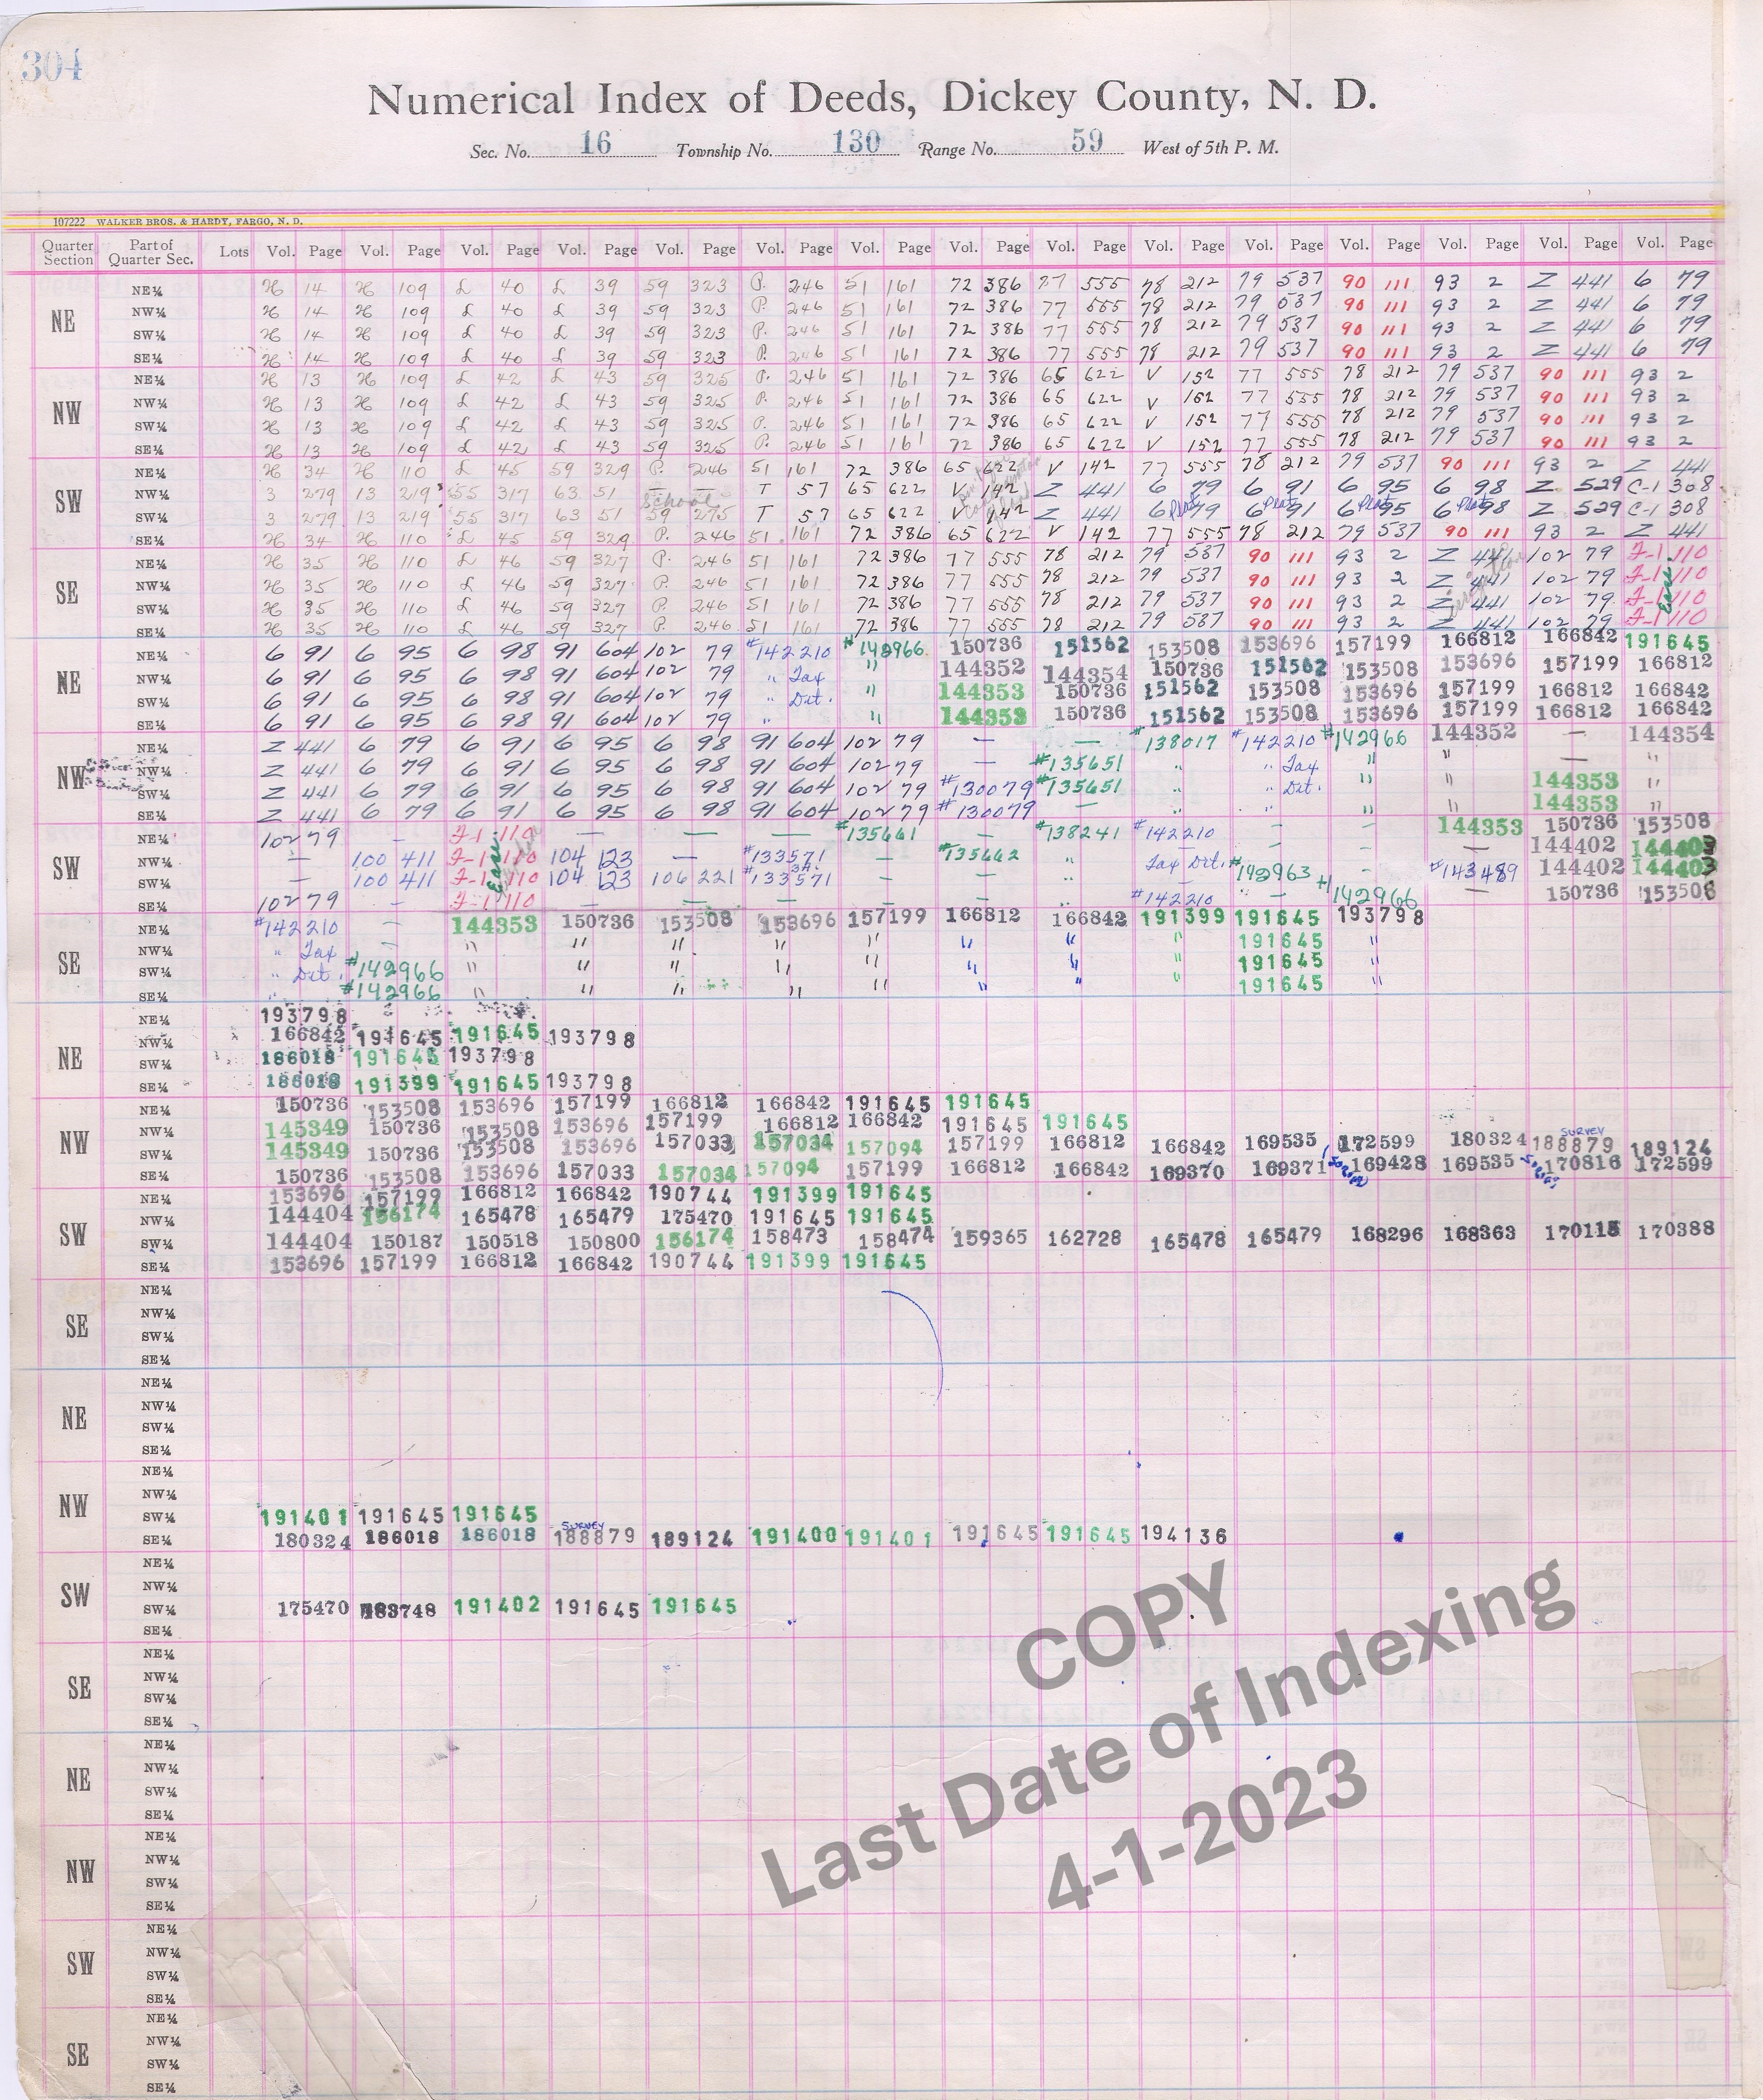 304
Numerical Index of Deeds, Dickey County, N. D.
Sec. No. 16 Township No. 130 Range No. 59 West of 5th P. M.
107222 WALKER BROS. & HARDY, FARGO, N. D.
Quarter Section Part of Quarter Sec. Lots Vol. Page Vol. Page Vol. Page Vol. Page Vol. Page Vol. Page Vol. Page Vol. Page Vol. Page Vol. Page Vol. Page Vol. Page Vol. Page Vol. Page Vol. Page
NE
NE¼ H 14 H 109 L 40 L 39 59 323 P. 246 51 161 72 386 77 555 78 212 79 537 90 111 93 2 Z 441 6 79
NW¼ H 14 H 109 L 40 L 39 59 323 P. 246 51 161 72 386 77 555 78 212 79 537 90 111 93 2 Z 441 6 79
SW¼ H 14 H 109 L 40 L 39 59 323 P. 246 51 161 72 386 77 555 78 212 79 537 90 111 93 2 Z 441 6 79
SE¼ H 14 H 109 L 40 L 39 59 323 P. 246 51 161 72 386 77 555 78 212 79 537 90 111 93 2 Z 441 6 79
NW
NE¼ H 13 H 109 L 42 L 43 59 325 P. 246 51 161 72 386 65 622 V 152 77 555 78 212 79 537 90 111 93 2
NW¼ H 13 H 109 L 42 L 43 59 325 P. 246 51 161 72 386 65 622 V 152 77 555 78 212 79 537 90 111 93 2
SW¼ H 13 H 109 L 42 L 43 59 325 P. 246 51 161 72 386 65 622 V 152 77 555 78 212 79 537 90 111 93 2
SE¼ H 13 H 109 L 42 L 43 59 325 P. 246 51 161 72 386 65 622 V 152 77 555 78 212 79 537 90 111 93 2
SW
NE¼ H 34 H 110 L 45 59 329 P. 246 51 161 72 386 65 622 V 142 77 555 78 212 79 537 90 111 93 2 Z 441
NW¼ 3 279 13 219 55 317 63 51 — — T 57 65 622 V 142 Z 441 6 79 6 91 6 95 6 98 Z 529 C-1 308
School
SW¼ 3 279 13 219 55 317 63 51 59 275 T 57 65 622 V 142 Z 441 6 Plat 79 6 Plat 91 6 Plat 95 6 Plat 98 Z 529 C-1 308
SE¼ H 34 H 110 L 45 59 329 P. 246 51 161 72 386 65 622 V 142 77 555 78 212 79 537 90 111 93 2 Z 441
SE
NE¼ H 35 H 110 L 46 59 327 P. 246 51 161 72 386 77 555 78 212 79 537 90 111 93 2 Z 441 102 79 F-1 110
NW¼ H 35 H 110 L 46 59 327 P. 246 51 161 72 386 77 555 78 212 79 537 90 111 93 2 Z 441 102 79 F-1 110
SW¼ H 35 H 110 L 46 59 327 P. 246 51 161 72 386 77 555 78 212 79 537 90 111 93 2 Z 441 102 79 F-1 110
SE¼ H 35 H 110 L 46 59 327 P. 246 51 161 72 386 77 555 78 212 79 537 90 111 93 2 Z 441 102 79 F-1 110
Ease.
NE
NE¼ 6 91 6 95 6 98 91 604 102 79 #142210 #142966 150736 151562 153508 153696 157199 166812 166842 191645
NW¼ 6 91 6 95 6 98 91 604 102 79 " Tax " 144352 144354 150736 151562 153508 153696 157199 166812
SW¼ 6 91 6 95 6 98 91 604 102 79 " Dit. " 144353 150736 151562 153508 153696 157199 166812 166842
SE¼ 6 91 6 95 6 98 91 604 102 79 " " 144353 150736 151562 153508 153696 157199 166812 166842
NW
NE¼ Z 441 6 79 6 91 6 95 6 98 91 604 102 79 — — #138017 #142210 #142966 144352 — 144354
NW¼ Z 441 6 79 6 91 6 95 6 98 91 604 102 79 — #135651 " " Tax " " "
SW¼ Z 441 6 79 6 91 6 95 6 98 91 604 102 79 #130079 #135651 " " Dit. " " 144353 "
SE¼ Z 441 6 79 6 91 6 95 6 98 91 604 102 79 #130079 — " " " " 144353 "
SW
NE¼ 102 79 — F-1 110 — — — #135661 — #138241 #142210 — — 144353 150736 153508
NW¼ — 100 411 F-1 110 104 123 — #133571 — #135662 " Tax Dit. #142963 — — 144402 144403
SW¼ — 100 411 F-1 110 104 123 106 221 #133571 — — " — " #143489 144402 144403
SE¼ 102 79 — F-1 110 — — — — — — #142210 — #142966 — 150736 153508
Ease.
SE
NE¼ #142210 — 144353 150736 153508 153696 157199 166812 166842 191399 191645 193798
NW¼ " Tax — " " " " " " " " 191645 "
SW¼ " Dit. #142966 " " " " " " " " 191645 "
SE¼ " #142966 " " " " " " " " 191645 "
NE
NE¼ 193798
NW¼ 166842 191645 191645 193798
SW¼ 186018 191645 193798
SE¼ 186018 191399 191645 193798
NW
NE¼ 150736 153508 153696 157199 166812 166842 191645 191645
NW¼ 145349 150736 153508 153696 157199 166812 166842 191645 191645
SURVEY
SW¼ 145349 150736 153508 153696 157033 157034 157094 157199 166812 166842 169535 172599 180324 188879 189124
SE¼ 150736 153508 153696 157033 157034 157094 157199 166812 166842 169370 169371 169428 169535 170816 172599
SW
NE¼ 153696 157199 166812 166842 190744 191399 191645
NW¼ 144404 156174 165478 165479 175470 191645 191645
SW¼ 144404 150187 150518 150800 156174 158473 158474 159365 162728 165478 165479 168296 168363 170115 170388
SE¼ 153696 157199 166812 166842 190744 191399 191645
SE
NE¼
NW¼
SW¼
SE¼
NE
NE¼
NW¼
SW¼
SE¼
NW
NE¼
NW¼
SW¼ 191401 191645 191645
SURVEY
SE¼ 180324 186018 186018 188879 189124 191400 191401 191645 191645 194136
SW
NE¼
NW¼
SW¼ 175470 183748 191402 191645 191645
SE¼
SE
NE¼
NW¼
SW¼
SE¼
NE
NE¼
NW¼
SW¼
SE¼
NW
NE¼
NW¼
SW¼
SE¼
SW
NE¼
NW¼
SW¼
SE¼
SE
NE¼
NW¼
SW¼
SE¼
COPY
Last Date of Indexing
4-1-2023